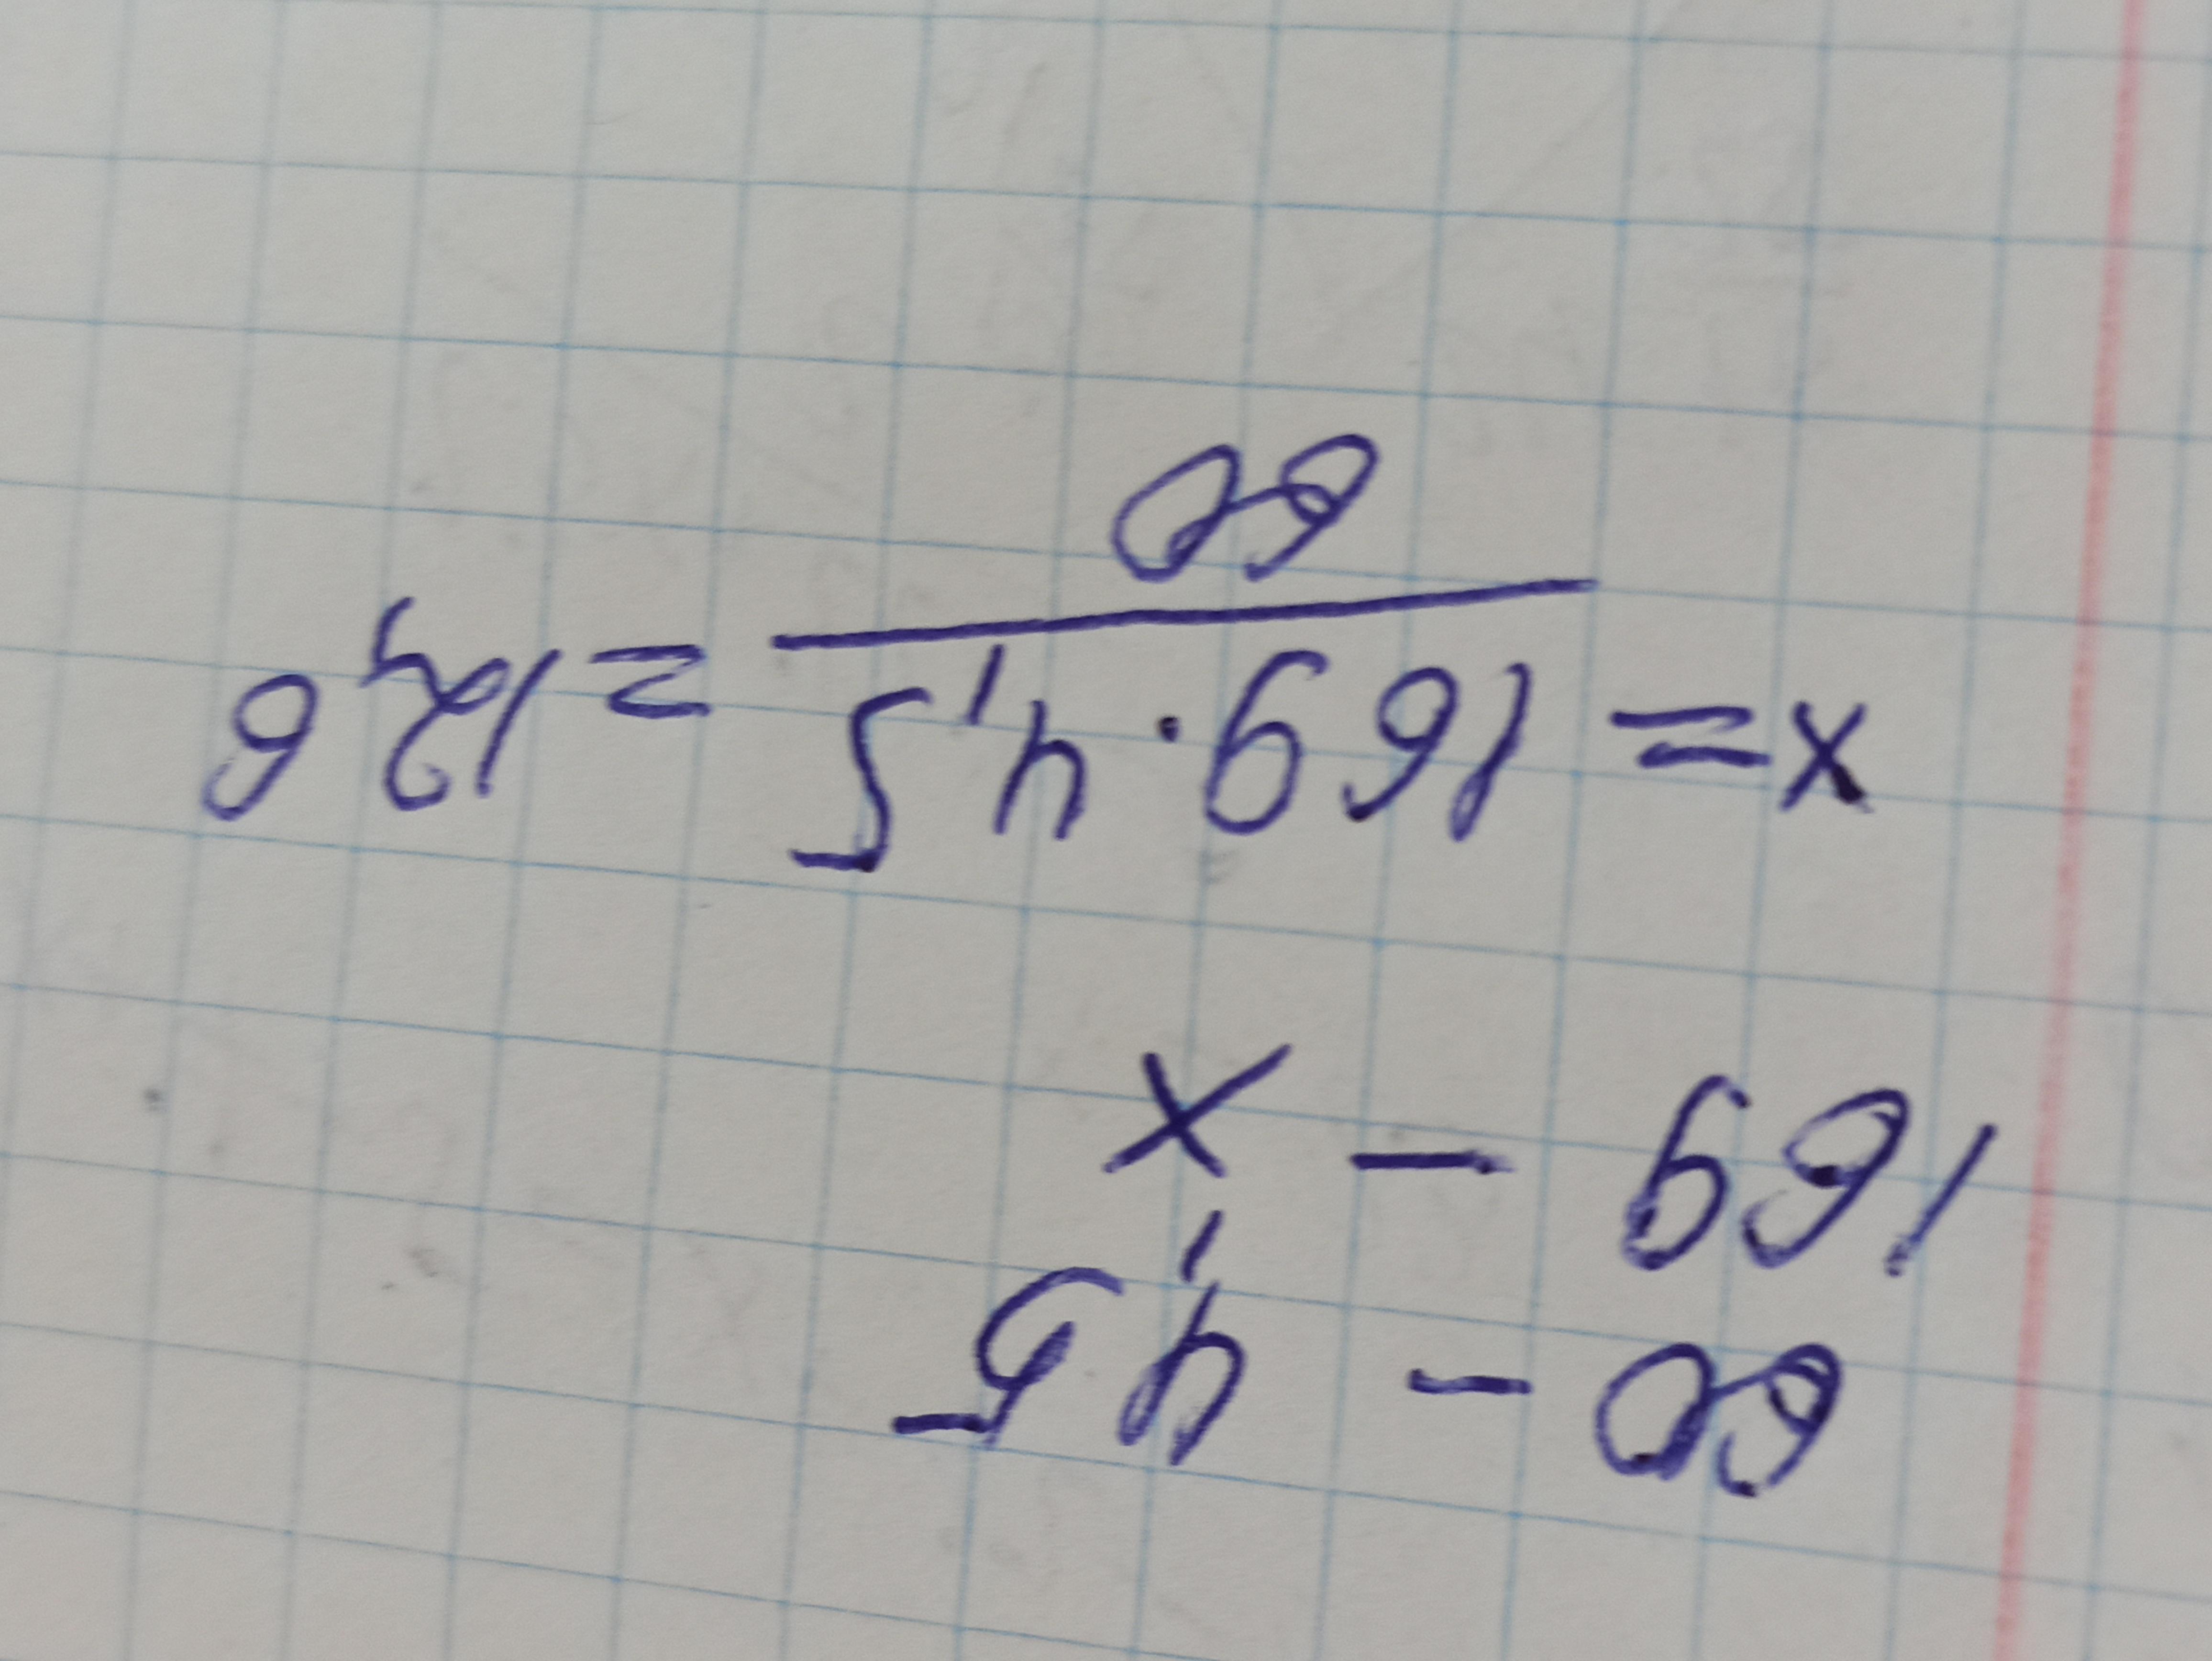 60 - 4,5
169 - x
x = 169 · 4,5 / 60 = 12,6